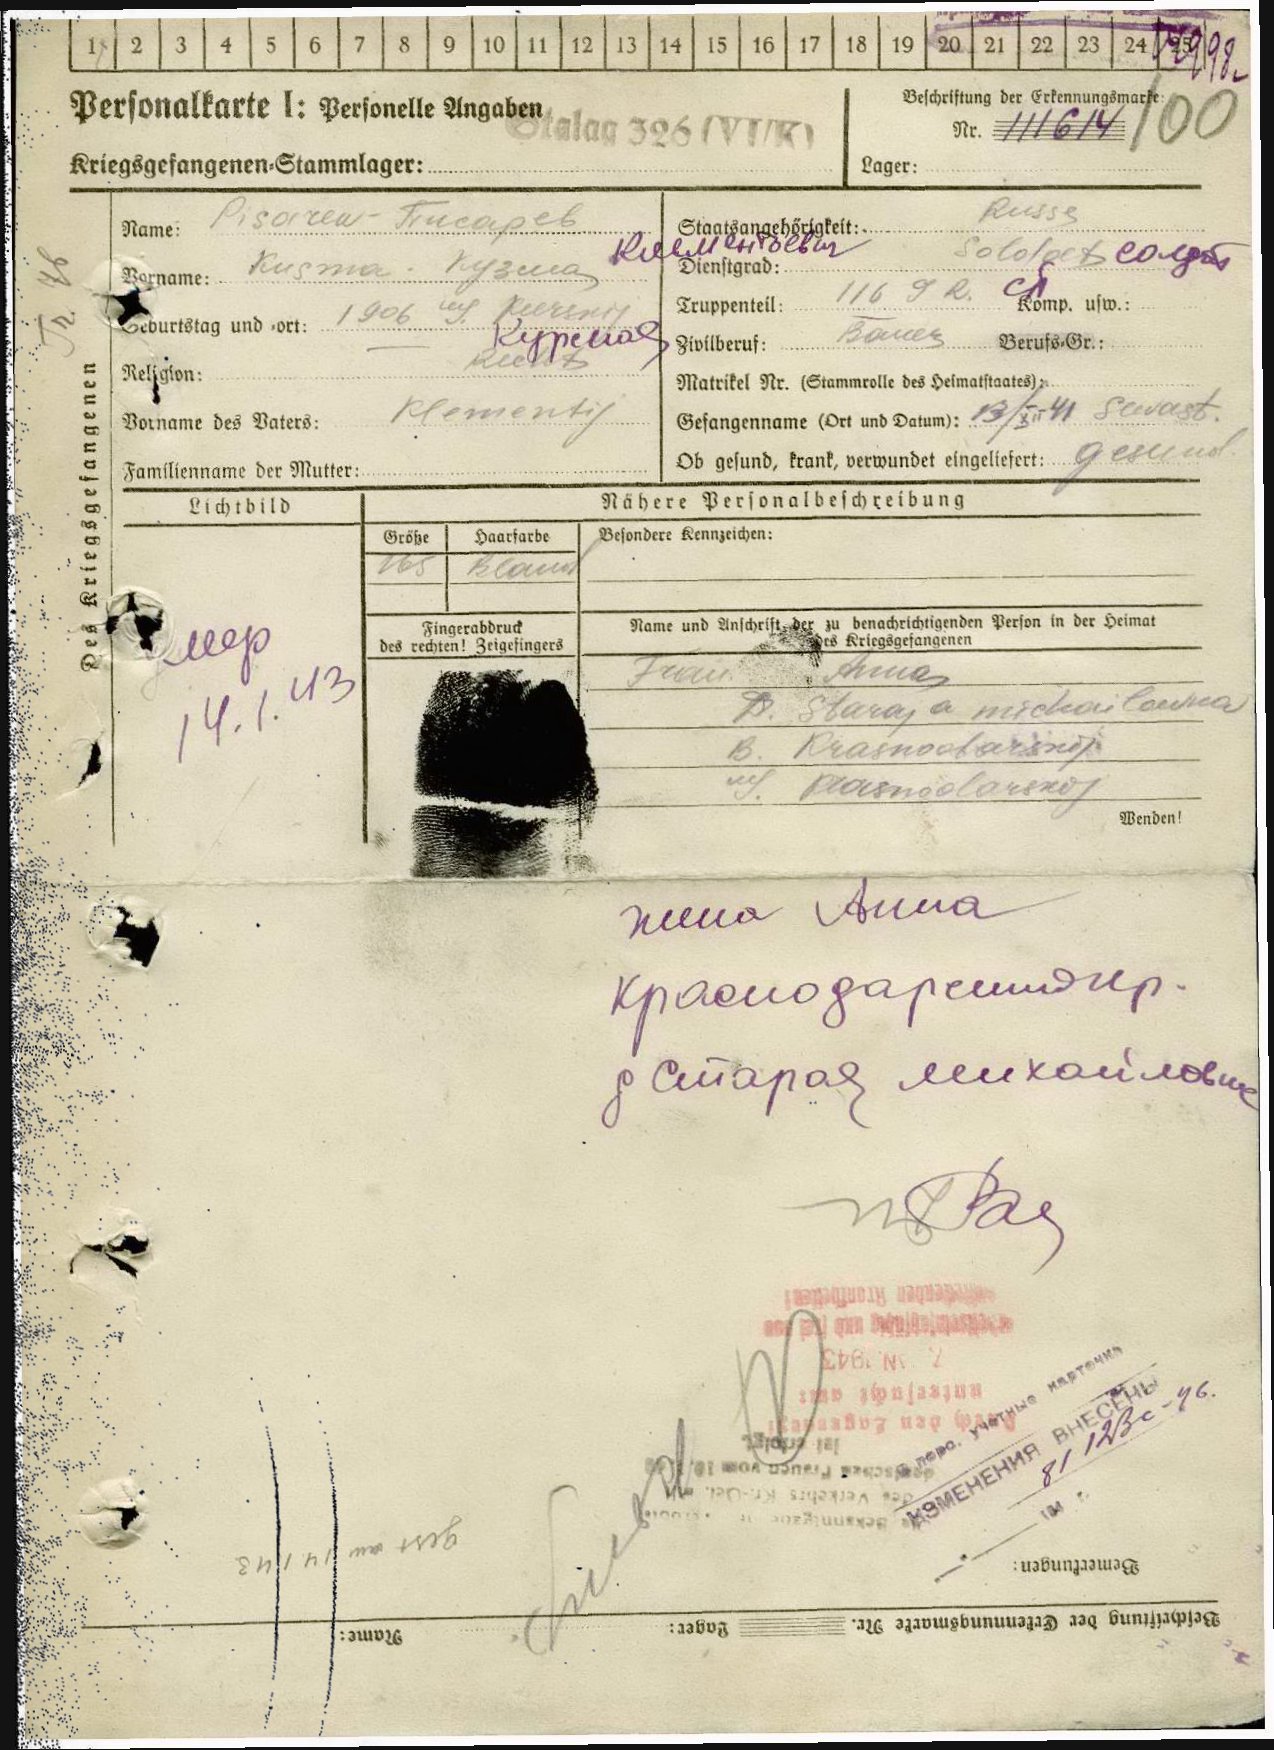 1 2 3 4 5 6 7 8 9 10 11 12 13 14 15 16 17 18 19 20 21 22 23 24 25
Personalkarte I: Personelle Angaben
Stalag 326 (VI/K)
Kriegsgefangenen-Stammlager:
Beschriftung der Erkennungsmarke
Nr. 111614
100
Lager:
Des Kriegsgefangenen
Name: Pisarew - Писарев
Vorname: Kusma - Кузма Климентьевич
Geburtstag und -ort: 1906 Kurskij
Курская
Religion:
Vorname des Vaters: Klementij
Familienname der Mutter:
Staatsangehörigkeit: Russe
Dienstgrad: Soldat солдат
Truppenteil: 116 J R. сп Komp. usw.:
Zivilberuf: Bauer Berufs-Gr.:
Matrikel Nr. (Stammrolle des Heimatstaates):
Gefangenname (Ort und Datum): Sewast.
Ob gesund, krank, verwundet eingeliefert: gesund.
Lichtbild
Nähere Personalbeschreibung
Größe Haarfarbe Besondere Kennzeichen:
165 Blond
Fingerabdruck
des rechten! Zeigefingers
Name und Anschrift der zu benachrichtigenden Person in der Heimat
des Kriegsgefangenen
Frau Anna
D. Staraja michailowna
B. Krasnodarskij
Krasnodarskoj
Wenden!
умер
14.1.43
жена Анна
Краснодарский кр.
д Старая Михайловна
7. 1943
untersucht am:
ist erfolgt.
учетные карточки
ИЗМЕНЕНИЯ ВНЕСЕНЫ
gest am 14 1 43
Bemerkungen:
Beschriftung der Erkennungsmarke Nr. Lager: Name: